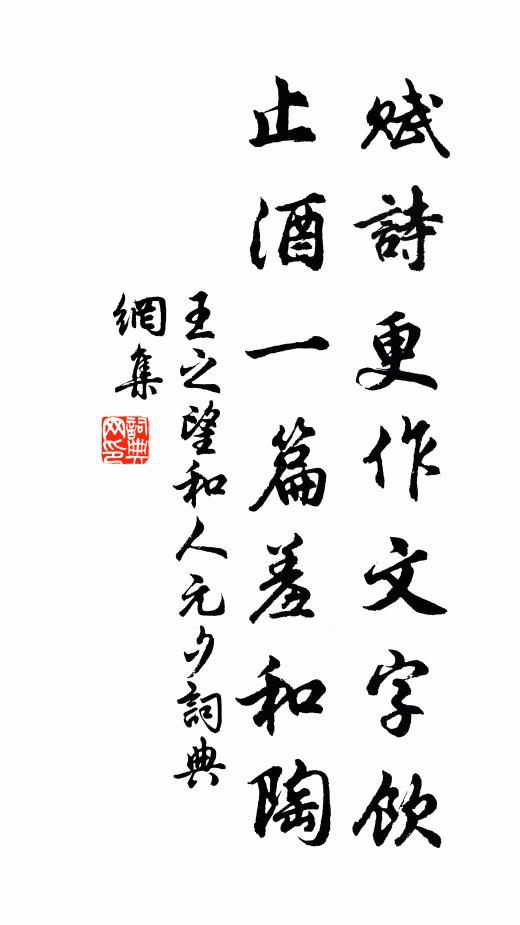 賦詩更作文字飲
止酒一篇羞和陶
王之望和人元夕詞典
網集
詞典網印